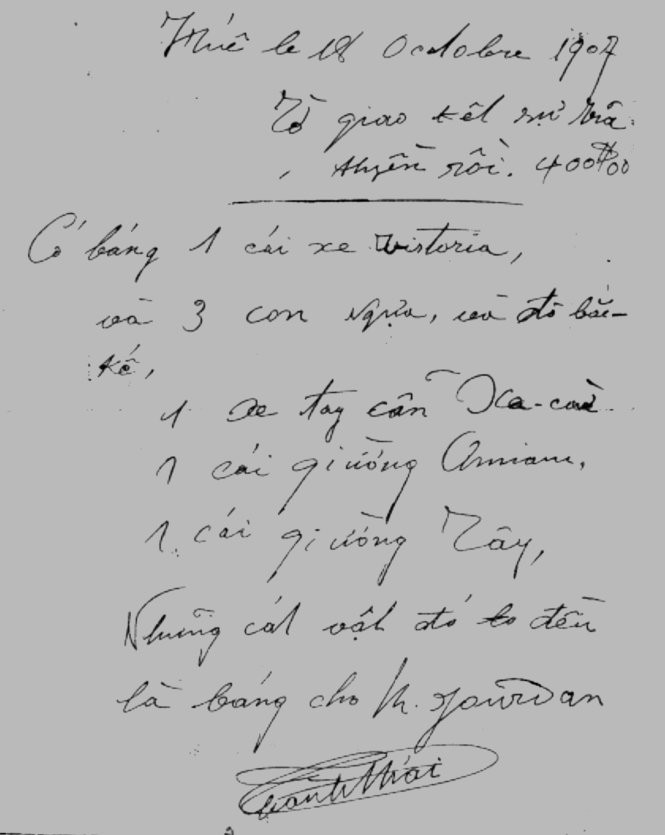 Huế le 18 Octobre 1907
Tờ giao kèl sự mã
thyền rồi. 400$00
Có báng 1 cái xe victoria,
và 3 con ngựa, và đồ bắc-
kế,
1 xe tay cần Xa-cac
1 cái giường Annam,
1 cái giường Tây,
Những cál vật đó to đền
là báng cho M. Jourdan
Thành Thái